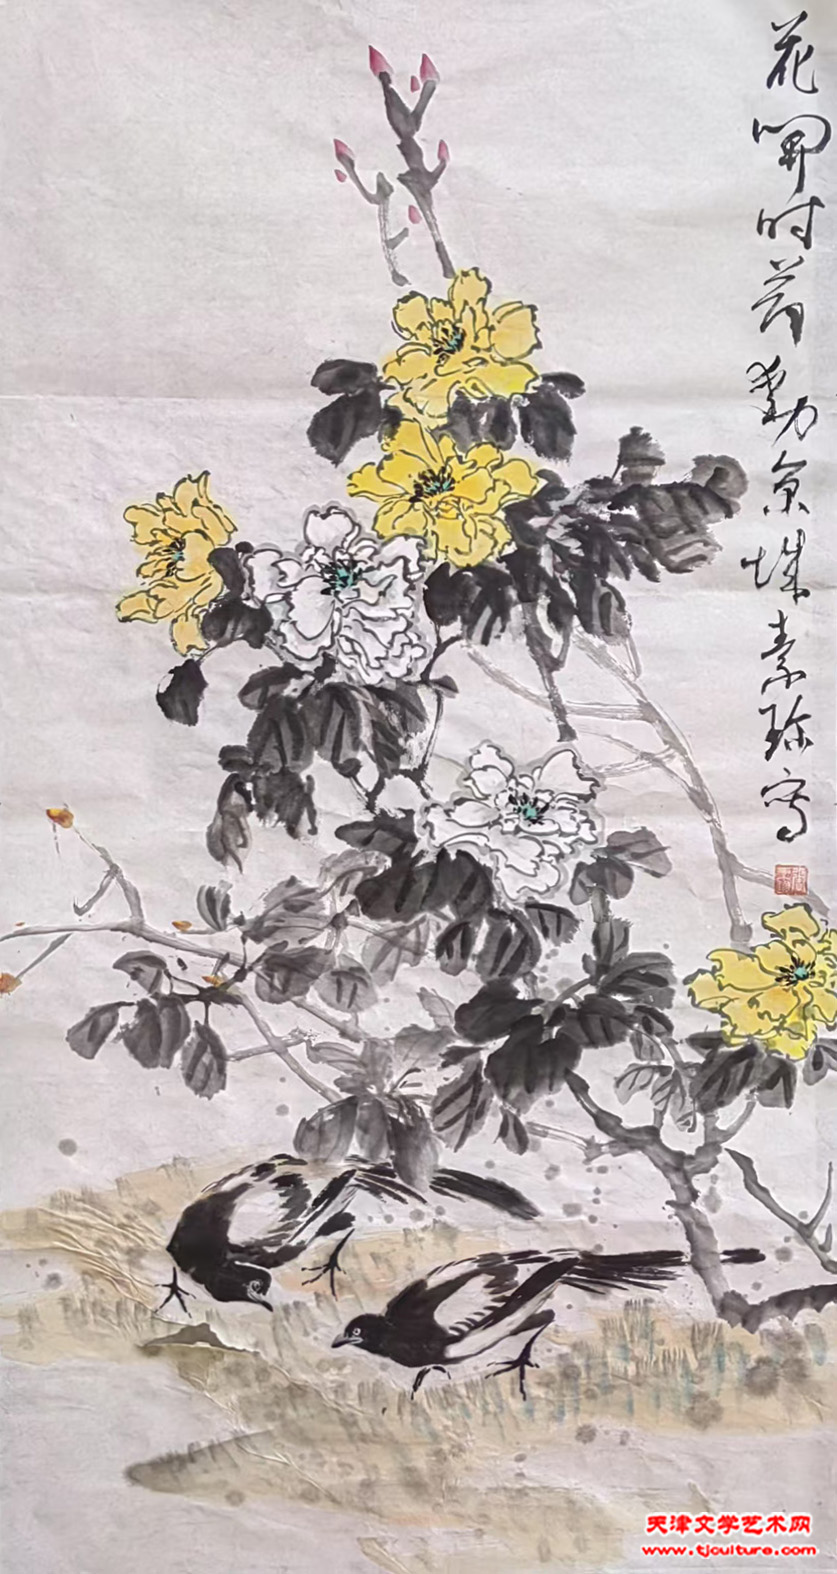 花开时节动京城 素珍写
天津文学艺术网
www.tjculture.com